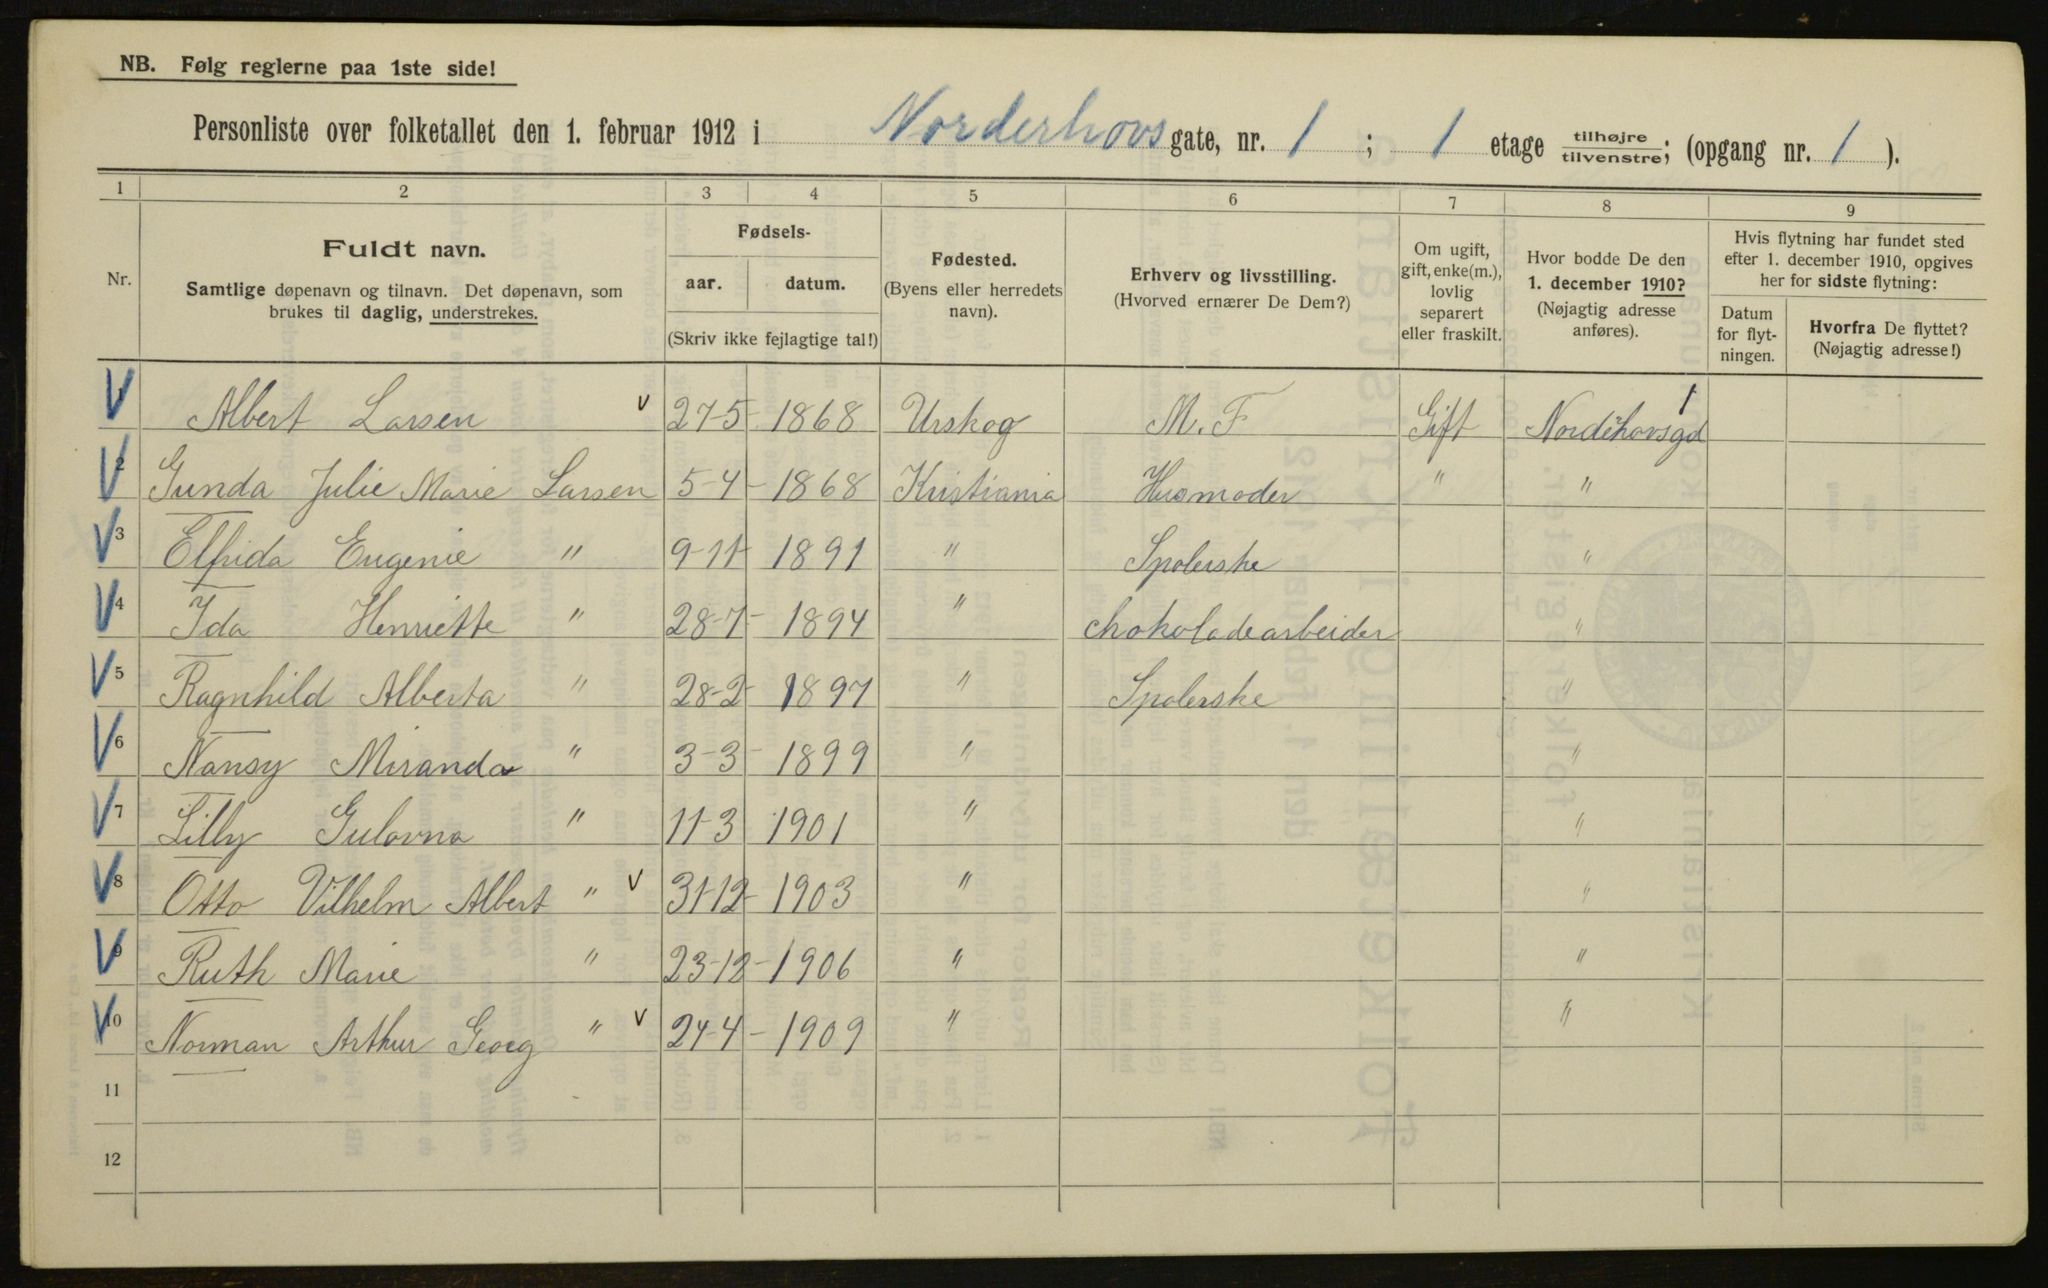 NB. Følg reglerne paa 1ste side!
Personliste over folketallet den 1. februar 1912 i Norderhovs gate, nr. 1 ; 1 etage tilhøjre/tilvenstre; (opgang nr. 1 ).
1 2 3 4 5 6 7 8 9
Nr.
Fuldt navn.
Samtlige døpenavn og tilnavn. Det døpenavn, som
brukes til daglig, understrekes.
Fødsels-
aar. datum.
(Skriv ikke fejlagtige tal!)
Fødested.
(Byens eller herredets
navn).
Erhverv og livsstilling.
(Hvorved ernærer De Dem?)
Om ugift,
gift, enke(m.),
lovlig
separert
eller fraskilt.
Hvor bodde De den
1. december 1910?
(Nøjagtig adresse
anføres).
Hvis flytning har fundet sted
efter 1. december 1910, opgives
her for sidste flytning:
Datum
for flyt-
ningen.
Hvorfra De flyttet?
(Nøjagtig adresse!)
1 Albert Larsen v 27-5- 1868 Urskog M.F Gift Norderhovsgd 1
2 Gunda Julie Marie Larsen 5-4- 1868 Kristiania Husmoder " "
3 Elfrida Eugenie " 9-11- 1891 " Spolerske "
4 Ida Henriette " 28-7- 1894 " chokoladearbeider "
5 Ragnhild Alberta " 28-2- 1897 " Spolerske "
6 Nansy Miranda " 3-3- 1899 " "
7 Lilly Gulovna " 11-3 1901 " "
8 Otto Vilhelm Albert " v 31-12- 1903 " "
9 Ruth Marie " 23-12- 1906 " "
10 Norman Arthur Georg " v 24-4- 1909 " "
11
12